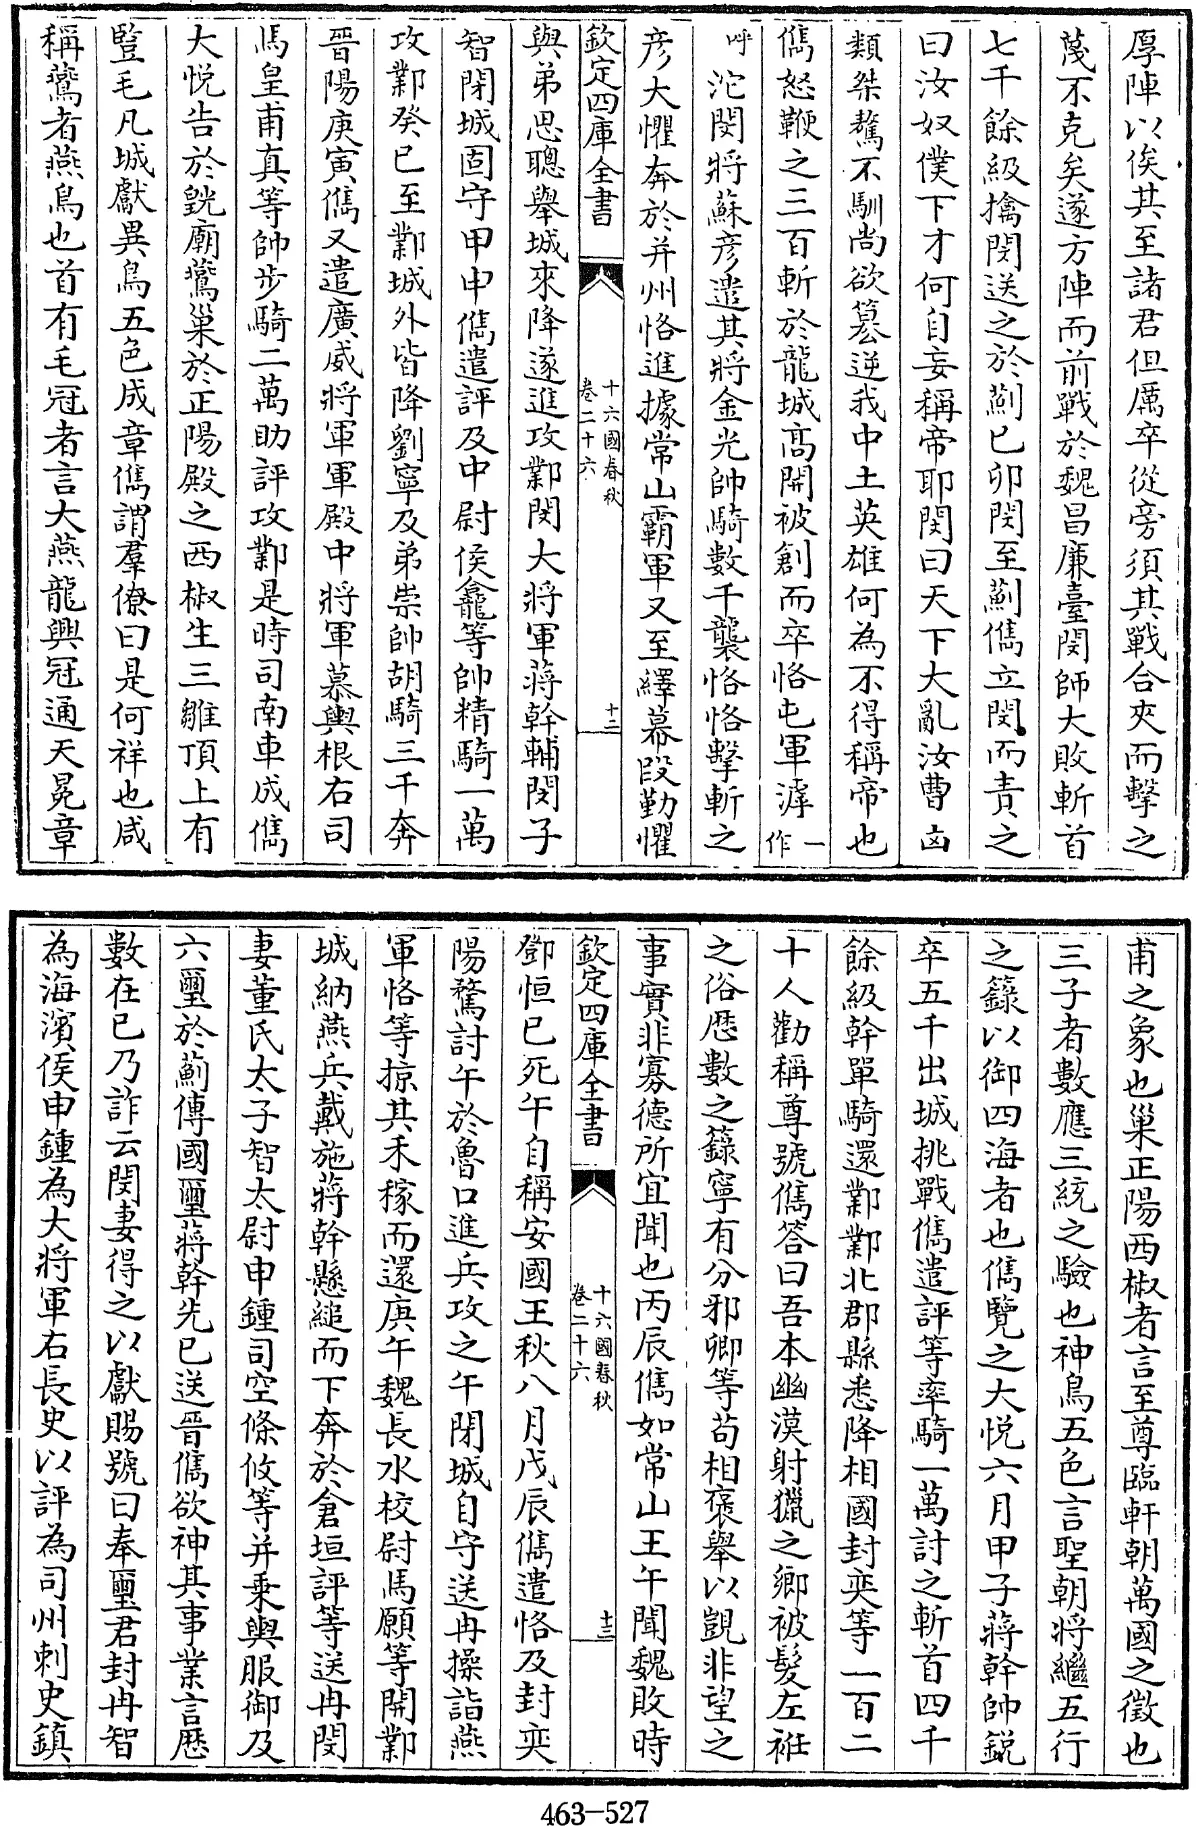 厚陣以俟其至諸君但厲卒從旁須其戰合夾而擊之
蔑不克矣遂方陣而前戰於魏昌廉臺閔師大敗斬首
七千餘級擒閔送之於薊已卯閔至薊儁立閔而責之
曰汝奴僕下才何自妄稱帝耶閔曰天下大亂汝曹凶
類桀驁不馴尚欲簒逆我中土英雄何為不得稱帝也
儁怒鞭之三百斬於龍城髙開被創而卒恪屯軍滹一作
呼沱閔將蘇彦遣其將金光帥騎數千襲恪恪擊斬之
彦大懼奔於并州恪進據常山霸軍又至繹幕段勤懼
欽定四庫全書
十六國春秋
卷二十六
十二
與弟思聰舉城來降遂進攻鄴閔大將軍蔣幹輔閔子
智閉城固守甲申儁遣評及中尉侯龕等帥精騎一萬
攻鄴癸巳至鄴城外皆降劉寧及弟崇帥胡騎三千奔
晉陽庚寅儁又遣廣威將軍軍殿中將軍慕輿根右司
馬皇甫真等帥步騎二萬助評攻鄴是時司南車成儁
大悦告於皝廟鷰巢於正陽殿之西椒生三雛頂上有
豎毛凡城獻異鳥五色成章儁謂羣僚曰是何祥也咸
稱鷰者燕鳥也首有毛冠者言大燕龍興冠通天冕章
甫之象也巢正陽西椒者言至尊臨軒朝萬國之徵也
三子者數應三統之驗也神鳥五色言聖朝將繼五行
之籙以御四海者也儁覽之大悦六月甲子蔣幹帥鋭
卒五千出城挑戰儁遣評等率騎一萬討之斬首四千
餘級幹單騎還鄴鄴北郡縣悉降相國封奕等一百二
十人勸稱尊號儁答曰吾本幽漠射獵之鄉被髮左袵
之俗歴數之籙寧有分邪卿等苟相褒舉以覬非望之
事實非寡德所宜聞也丙辰儁如常山王午聞魏敗時
欽定四庫全書
十六國春秋
卷二十六
十三
鄧恒已死午自稱安國王秋八月戊辰儁遣恪及封奕
陽騖討午於魯口進兵攻之午閉城自守送冉操詣燕
軍恪等掠其禾稼而還庚午魏長水校尉馬願等開鄴
城納燕兵戴施蔣幹懸縋而下奔於倉垣評等送冉閔
妻董氏太子智太尉申鍾司空條攸等并乘輿服御及
六璽於薊傳國璽蔣幹先已送晉儁欲神其事業言歴
數在已乃詐云閔妻得之以獻賜號曰奉璽君封冉智
為海濱侯申鍾為大將軍右長史以評為司州刺史鎮
463-527